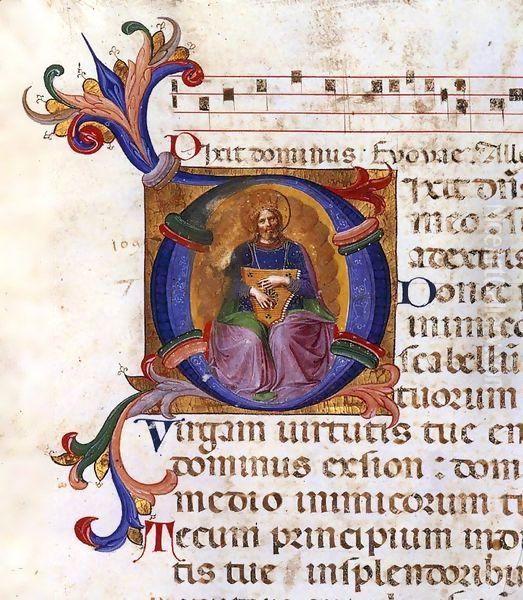 Dixit dominus. Evovae. Alle
109
Dixit dñ
meo: s
adextris
Donec
inimico
scabellū
tuorum
Virgam virtutis tue em
dominus exsion: dom
medio inimicorum t
Tecum principium indi
tis tue insplendoribu